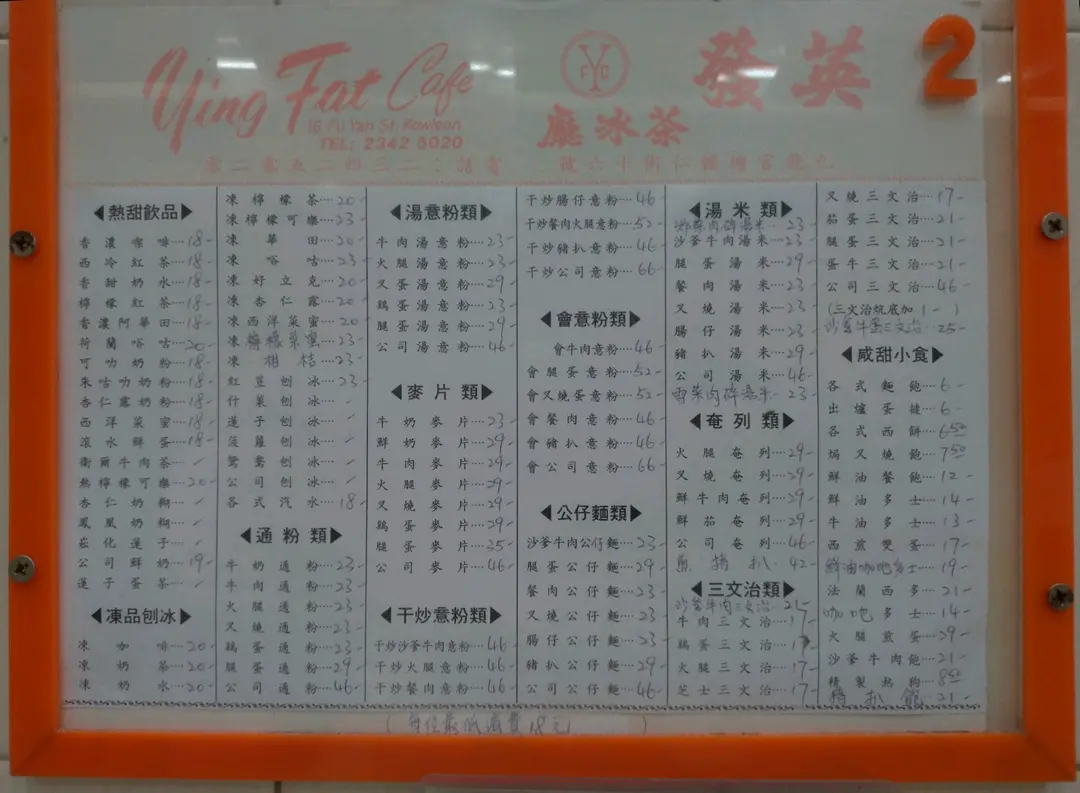 2
Ying Fat Cafe
16 Fu Yan St. Kowloon
TEL: 2342 5020
YFC
英發
茶冰廳
九龍官塘輔仁街十六號
電話：二三四二五零二零
◀熱甜飲品▶
香濃咖啡…18-
西冷紅茶…18-
香甜奶水…18-
檸檬紅茶…18-
香濃阿華田…18-
荷蘭唂咕…20
可叻奶粉…18-
朱咕叻奶粉…18-
杏仁露奶粉…18-
西洋菜蜜…18-
滾水鮮蛋…18-
衛爾牛肉茶…
熱檸檬可樂…20-
杏仁奶糊…
鳳凰奶糊…
崧化蓮子…
公司鮮奶…19-
蓮子蛋茶…
◀凍品刨冰▶
凍咖啡…20-
凍奶茶…20-
凍奶水…20-
凍檸檬茶…20-
凍檸檬可樂…23-
凍華田…20-
凍唂咕…23-
凍好立克…20-
凍杏仁露…20-
凍西洋菜蜜…20
凍檸檬菜蜜…23-
凍柑桔…23-
紅荳刨冰…23-
什菓刨冰…
蓮子刨冰…
菠蘿刨冰…
鴛鴦刨冰…
公司刨冰…
各式汽水…18-
◀通粉類▶
牛奶通粉…23-
牛肉通粉…23-
火腿通粉…23-
叉燒通粉…23-
鷄蛋通粉…23-
腿蛋通粉…29-
公司通粉…46-
◀湯意粉類▶
牛肉湯意粉…23-
火腿湯意粉…23-
叉蛋湯意粉…29-
鷄蛋湯意粉…23-
腿蛋湯意粉…29-
公司湯意粉…46-
◀麥片類▶
牛奶麥片…23-
鮮奶麥片…29-
牛肉麥片…29-
火腿麥片…29-
叉燒麥片…29-
鷄蛋麥片…29-
腿蛋麥片…35-
公司麥片…46-
◀干炒意粉類▶
干炒沙爹牛肉意粉…46
干炒火腿意粉…46-
干炒餐肉意粉…46-
干炒腸仔意粉…46-
干炒餐肉火腿意粉…52-
干炒豬扒意粉…46-
干炒公司意粉…66-
◀會意粉類▶
會牛肉意粉…46-
會腿蛋意粉…52-
會叉燒蛋意粉…52-
會餐肉意粉…46-
會豬扒意粉…46-
會公司意粉…66-
◀公仔麵類▶
沙爹牛肉公仔麵…23-
腿蛋公仔麵…29-
餐肉公仔麵…23-
叉燒公仔麵…23
腸仔公仔麵…23
豬扒公仔麵…29
公司公仔麵…46-
◀湯米類▶
肉碎湯米…23-
沙爹牛肉湯米…23-
腿蛋湯米…29-
餐肉湯米…23-
叉燒湯米…23-
腸仔湯米…23-
豬扒湯米…29-
公司湯米…46-
雪菜肉碎湯米…23
◀奄列類▶
火腿奄列…29-
叉燒奄列…29-
鮮牛肉奄列…29-
鮮茄奄列…29-
公司奄列…46-
煎豬扒…42-
◀三文治類▶
沙爹牛肉三文治…21-
牛肉三文治…17-
鷄蛋三文治…17
火腿三文治…17-
芝士三文治…17-
叉燒三文治…17-
茄蛋三文治…21-
腿蛋三文治…21-
蛋牛三文治…21-
公司三文治…46-
(三文治烘底加1-)
沙爹牛蛋三文治…25-
◀咸甜小食▶
各式麵飽…6-
出爐蛋撻…6-
各式西餅…6.50
焗叉燒飽…7.50
鮮油餐飽…12-
鮮油多士…14-
牛油多士…13-
西煎雙蛋…17-
鮮油咖吔多士…19-
法蘭西多…21-
咖吔多士…14-
火腿煎蛋…29-
沙爹牛肉飽…21-
精製熱狗…8.50
豬扒飽…21-
(每位最低消費18元)